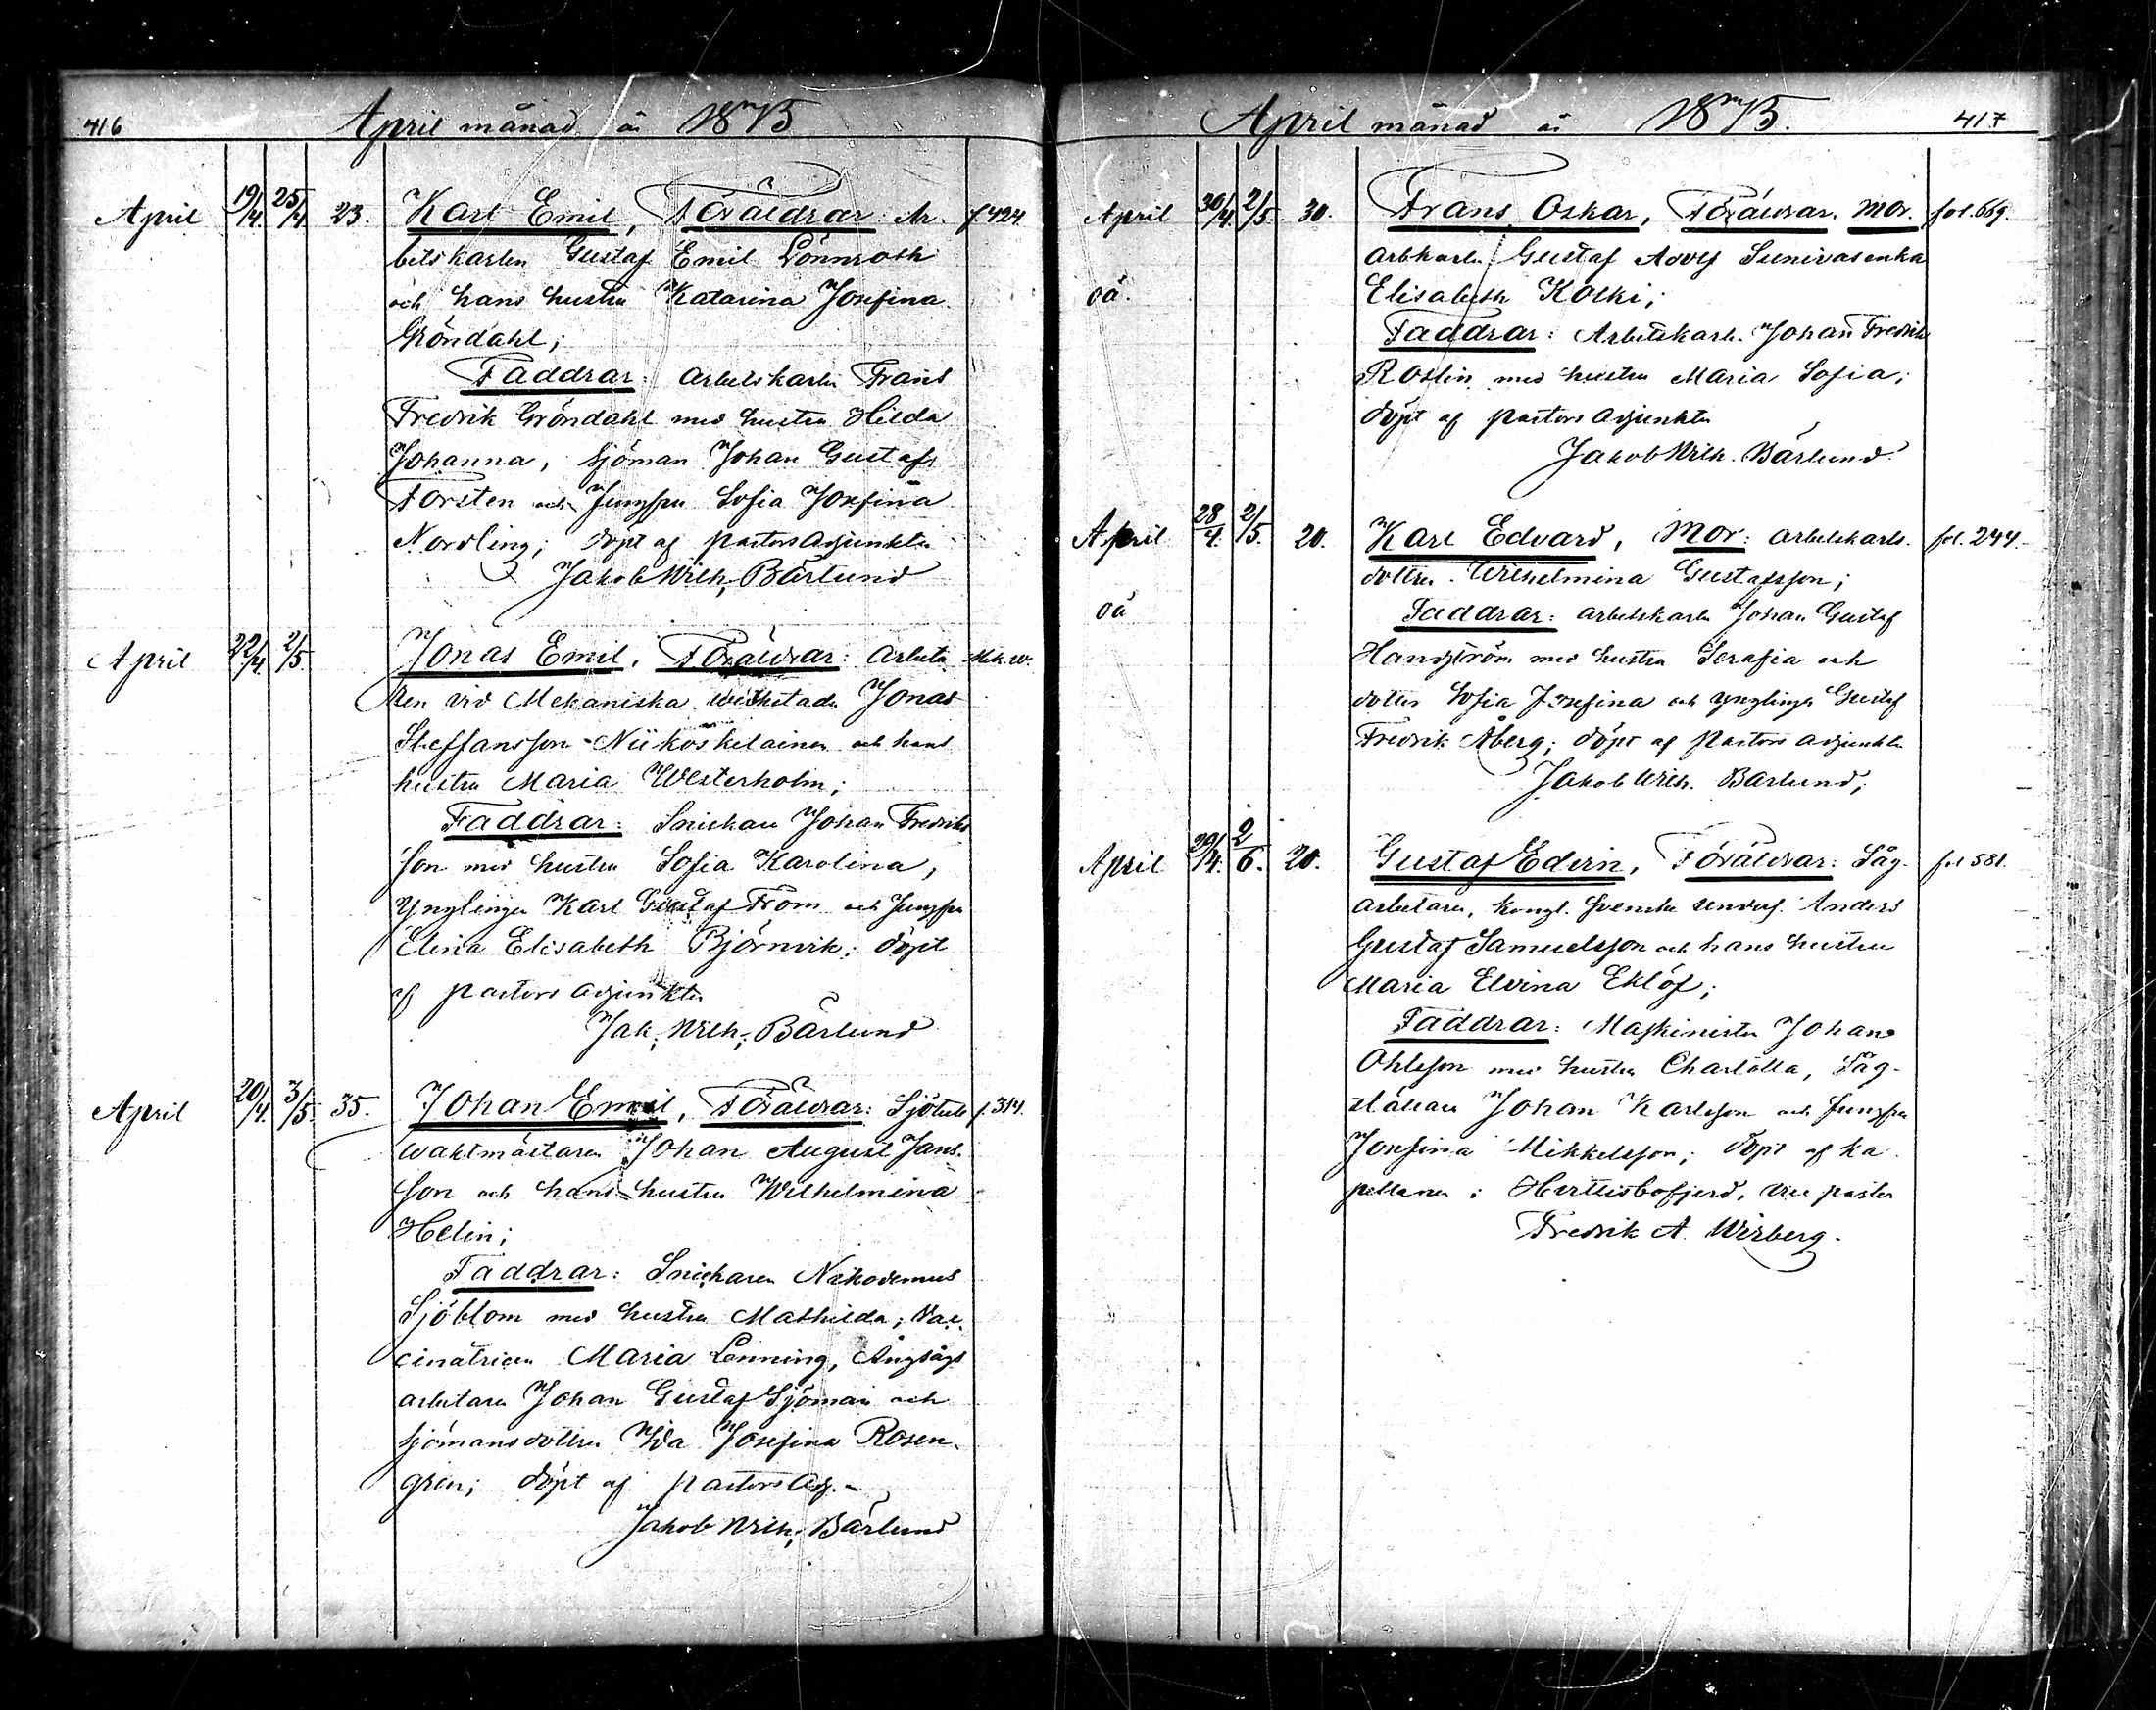 416
April månad år 1875
April 19/4. 25/4 23. Karl Emil, Föräldrar: Ar- f. 424.
betskarlen Gustaf Emil Lönnroth
och hans hustru Katarina Josefina
Gröndahl;
Faddrar: arbetskarlen Frans
Fredrik Gröndahl med hustru Hilda
Johanna, Sjöman Johan Gustaf
Forsten och Jungfru Sofia Josefina
Nordling; döpt af pastorsadjunkten
Jakob Wilh. Bärlund
April 22/4. 2/5. Jonas Emil, Föräldrar: Arbeta- Mek. w.
ren vid Mekaniska werkstaden Jonas
Steffansson Niikoskelainen och hans
hustru Maria Westerholm;
Faddrar: Snickaren Johan Fredriks
son med hustru Sofia Karolina,
Ynglingen Karl Gustaf From och Jungfru
Elina Elisabeth Björnvik; döpt
af pastors adjunkten
Jak. Wilh. Bärlund
April 20/4. 3/5. 35. Johan Emil, Föräldrar: Sjötull f. 314.
waktmästaren Johan August Jans-
son och hans hustru Wilhelmina
Helin;
Faddrar: Snickaren Nikodemus
Sjöblom med hustru Mathilda; Vac-
cinatricen Maria Lenning, Ångsågs
arbetaren Johan Gustaf Sjöman och
sjömansdottren Ida Josefina Rosen-
gren; döpt af pastors adj.
Jakob Wilh. Bärlund
April månad år 1875. 417
April 30/4. 2/5. 30. Frans Oskar, Föräldrar. Mor. fol. 669.
arbkarlen Gustaf Adolf
oä. Elisabeth Koski;
Faddrar: Arbetskarlen Johan Fredrik
Roslin med hustru Maria Sofia;
döpt af pastors adjunkten
Jakob Wilh. Bärlund
April 28/4. 2/5. 20. Karl Edvard, Mor: arbetskarls- fol. 244.
dottren Wilhelmina Gustafsson;
oä Faddrar: arbetskarlen Johan Gustaf
med hustru Serafia och
dotter Sofia Josefina och ynglingen Gustaf
Fredrik Åberg; döpt af pastors adjunkten
Jakob Wilh. Bärlund;
April 29/4. 2/6. 20. Gustaf Edvin, Föräldrar: Såg- fol 581.
arbetaren, kongl. Svenska unders. Anders
Gustaf Samuelsson och hans hustru
Maria Elvina Eklöf;
Faddrar: Maskinisten Johan
Ohlsson med hustru Charlotta, Såg-
ställaren Johan Karlsson och Jungfru
Josefina Mikkelsson; döpt af ka-
pellanen i Hvittisbofjerd, vice pastor
Fredrik A. Wirberg.